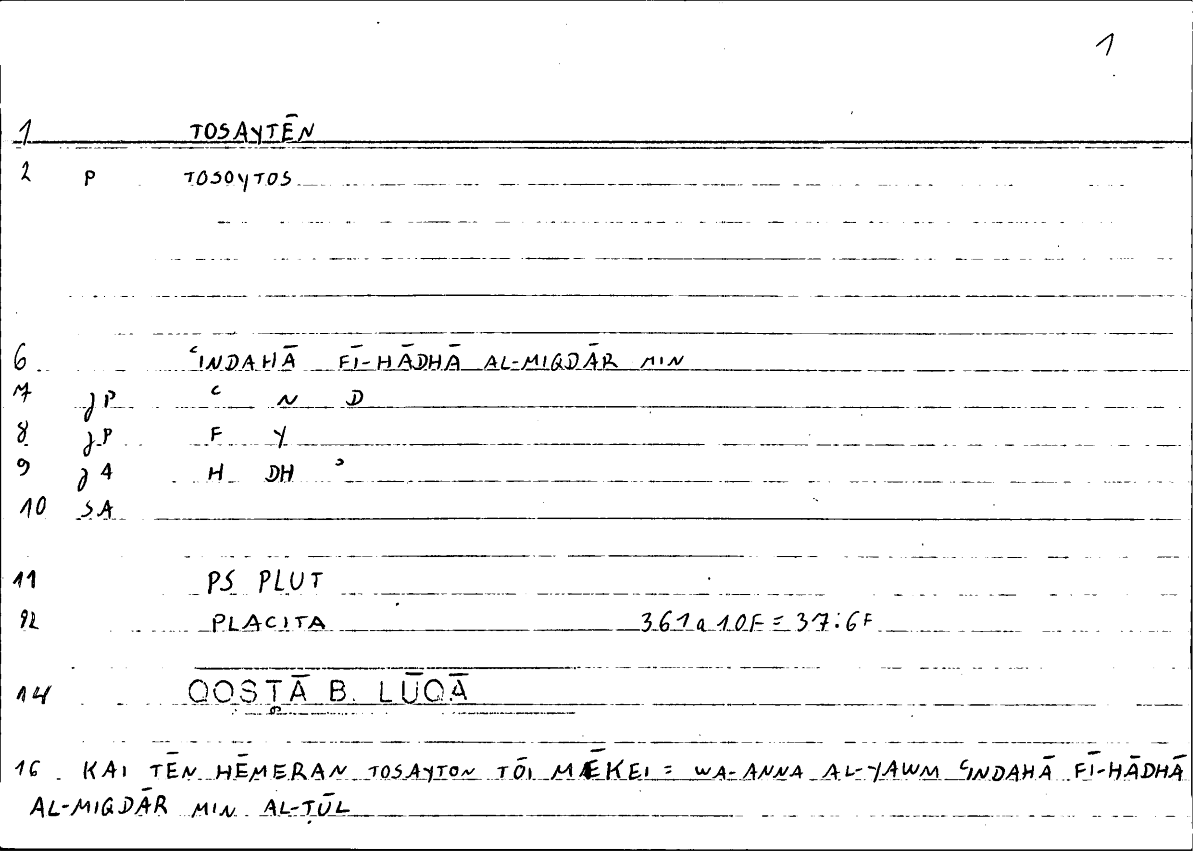 1
1 TOSAYTĒN
2 P TOSOYTOS
6 ʿINDAHĀ FĪ-HĀDHĀ AL-MIQDĀR MIN
7 JP ʿ N D
8 JP F Y
9 JA H DH ʾ
10 SA
11 PS PLUT
12 PLACITA 361a10F = 37:6F
14 QOSṬĀ B. LŪQĀ
16 KAI TĒN HĒMERAN TOSAYTON TŌI MĒKEI = WA-ANNA AL-YAWM ʿINDAHĀ FĪ-HĀDHĀ
AL-MIQDĀR MIN AL-ṬŪL